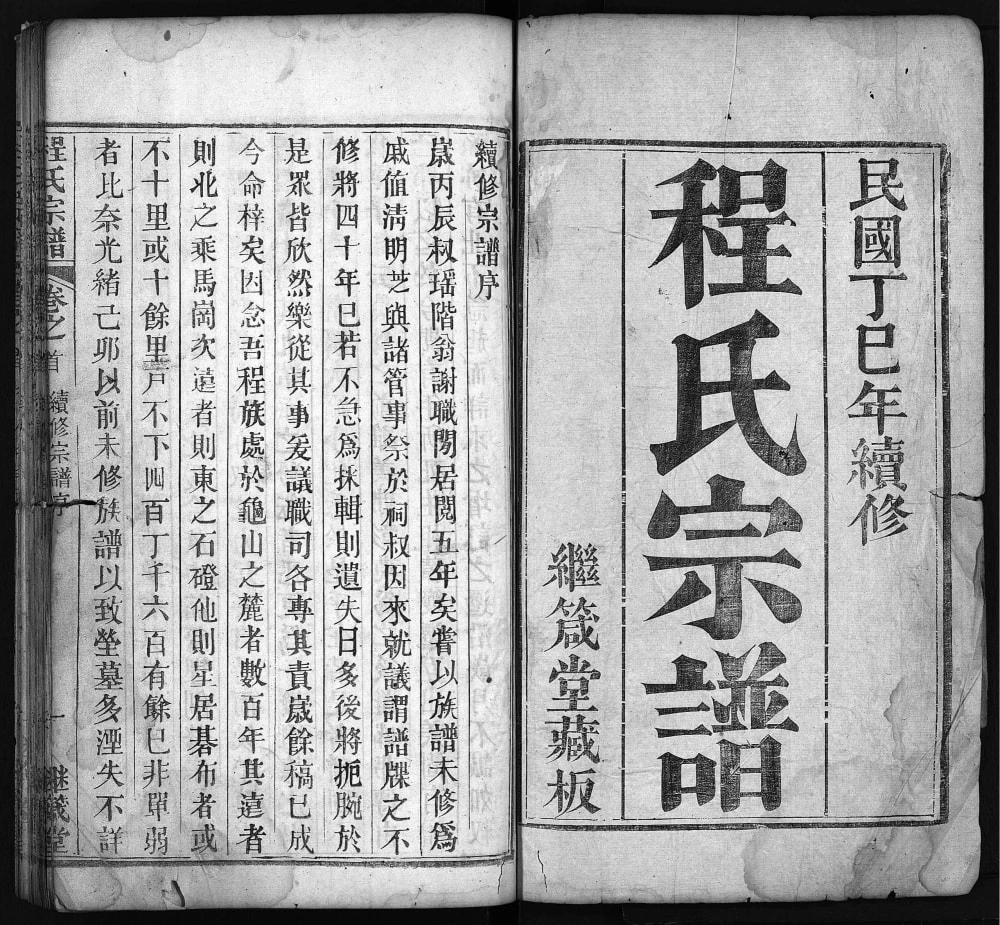 民國丁巳年續修
程氏宗譜
繼箴堂藏板
續修宗譜序
歲丙辰叔瑶階翁謝職閒居閱五年矣嘗以族譜未修爲
戚值淸明芝與諸管事祭於祠叔因來就議謂譜牒之不
修將四十年巳若不急爲採輯則遺失日多後將扼腕於
是眾皆欣然樂從其事爰議職司各專其責歲餘稿已成
今命梓矣因念吾程族處於龜山之麓者數百年其遠者
則北之乘馬崗次遠者則東之石磴他則星居碁布者或
不十里或十餘里戸不下四百丁千六百有餘巳非單弱
者比奈光緒己卯以前未修族譜以致塋墓多湮失不詳
程氏宗譜
卷之首
續修宗譜序
一
继箴堂